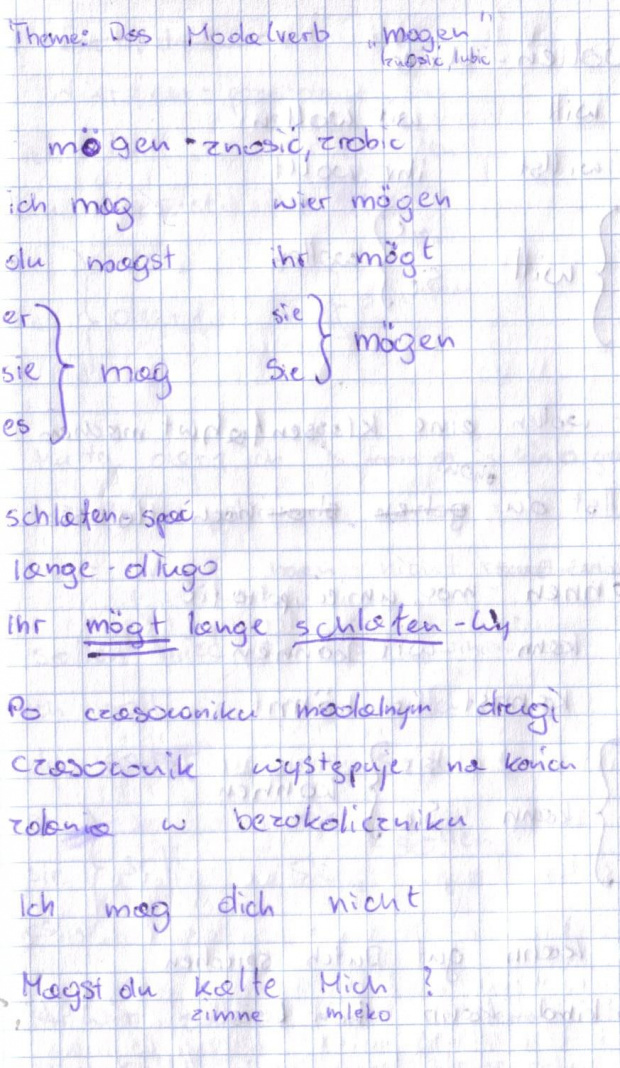 Theme: Das Modalverb „mogen"
znosić, lubic
mögen - znosić, zrobic
ich mag wier mögen
du magst ihr mögt
er sie
sie mag Sie mögen
es
schlafen - spać
lange - długo
ihr mögt lange schlafen - Wy
Po czasowniku modalnym drugi
czasownik występuje na końcu
zdania w bezokoliczniku
Ich mag dich nicht
Magst du kalte Mich ?
zimne mleko